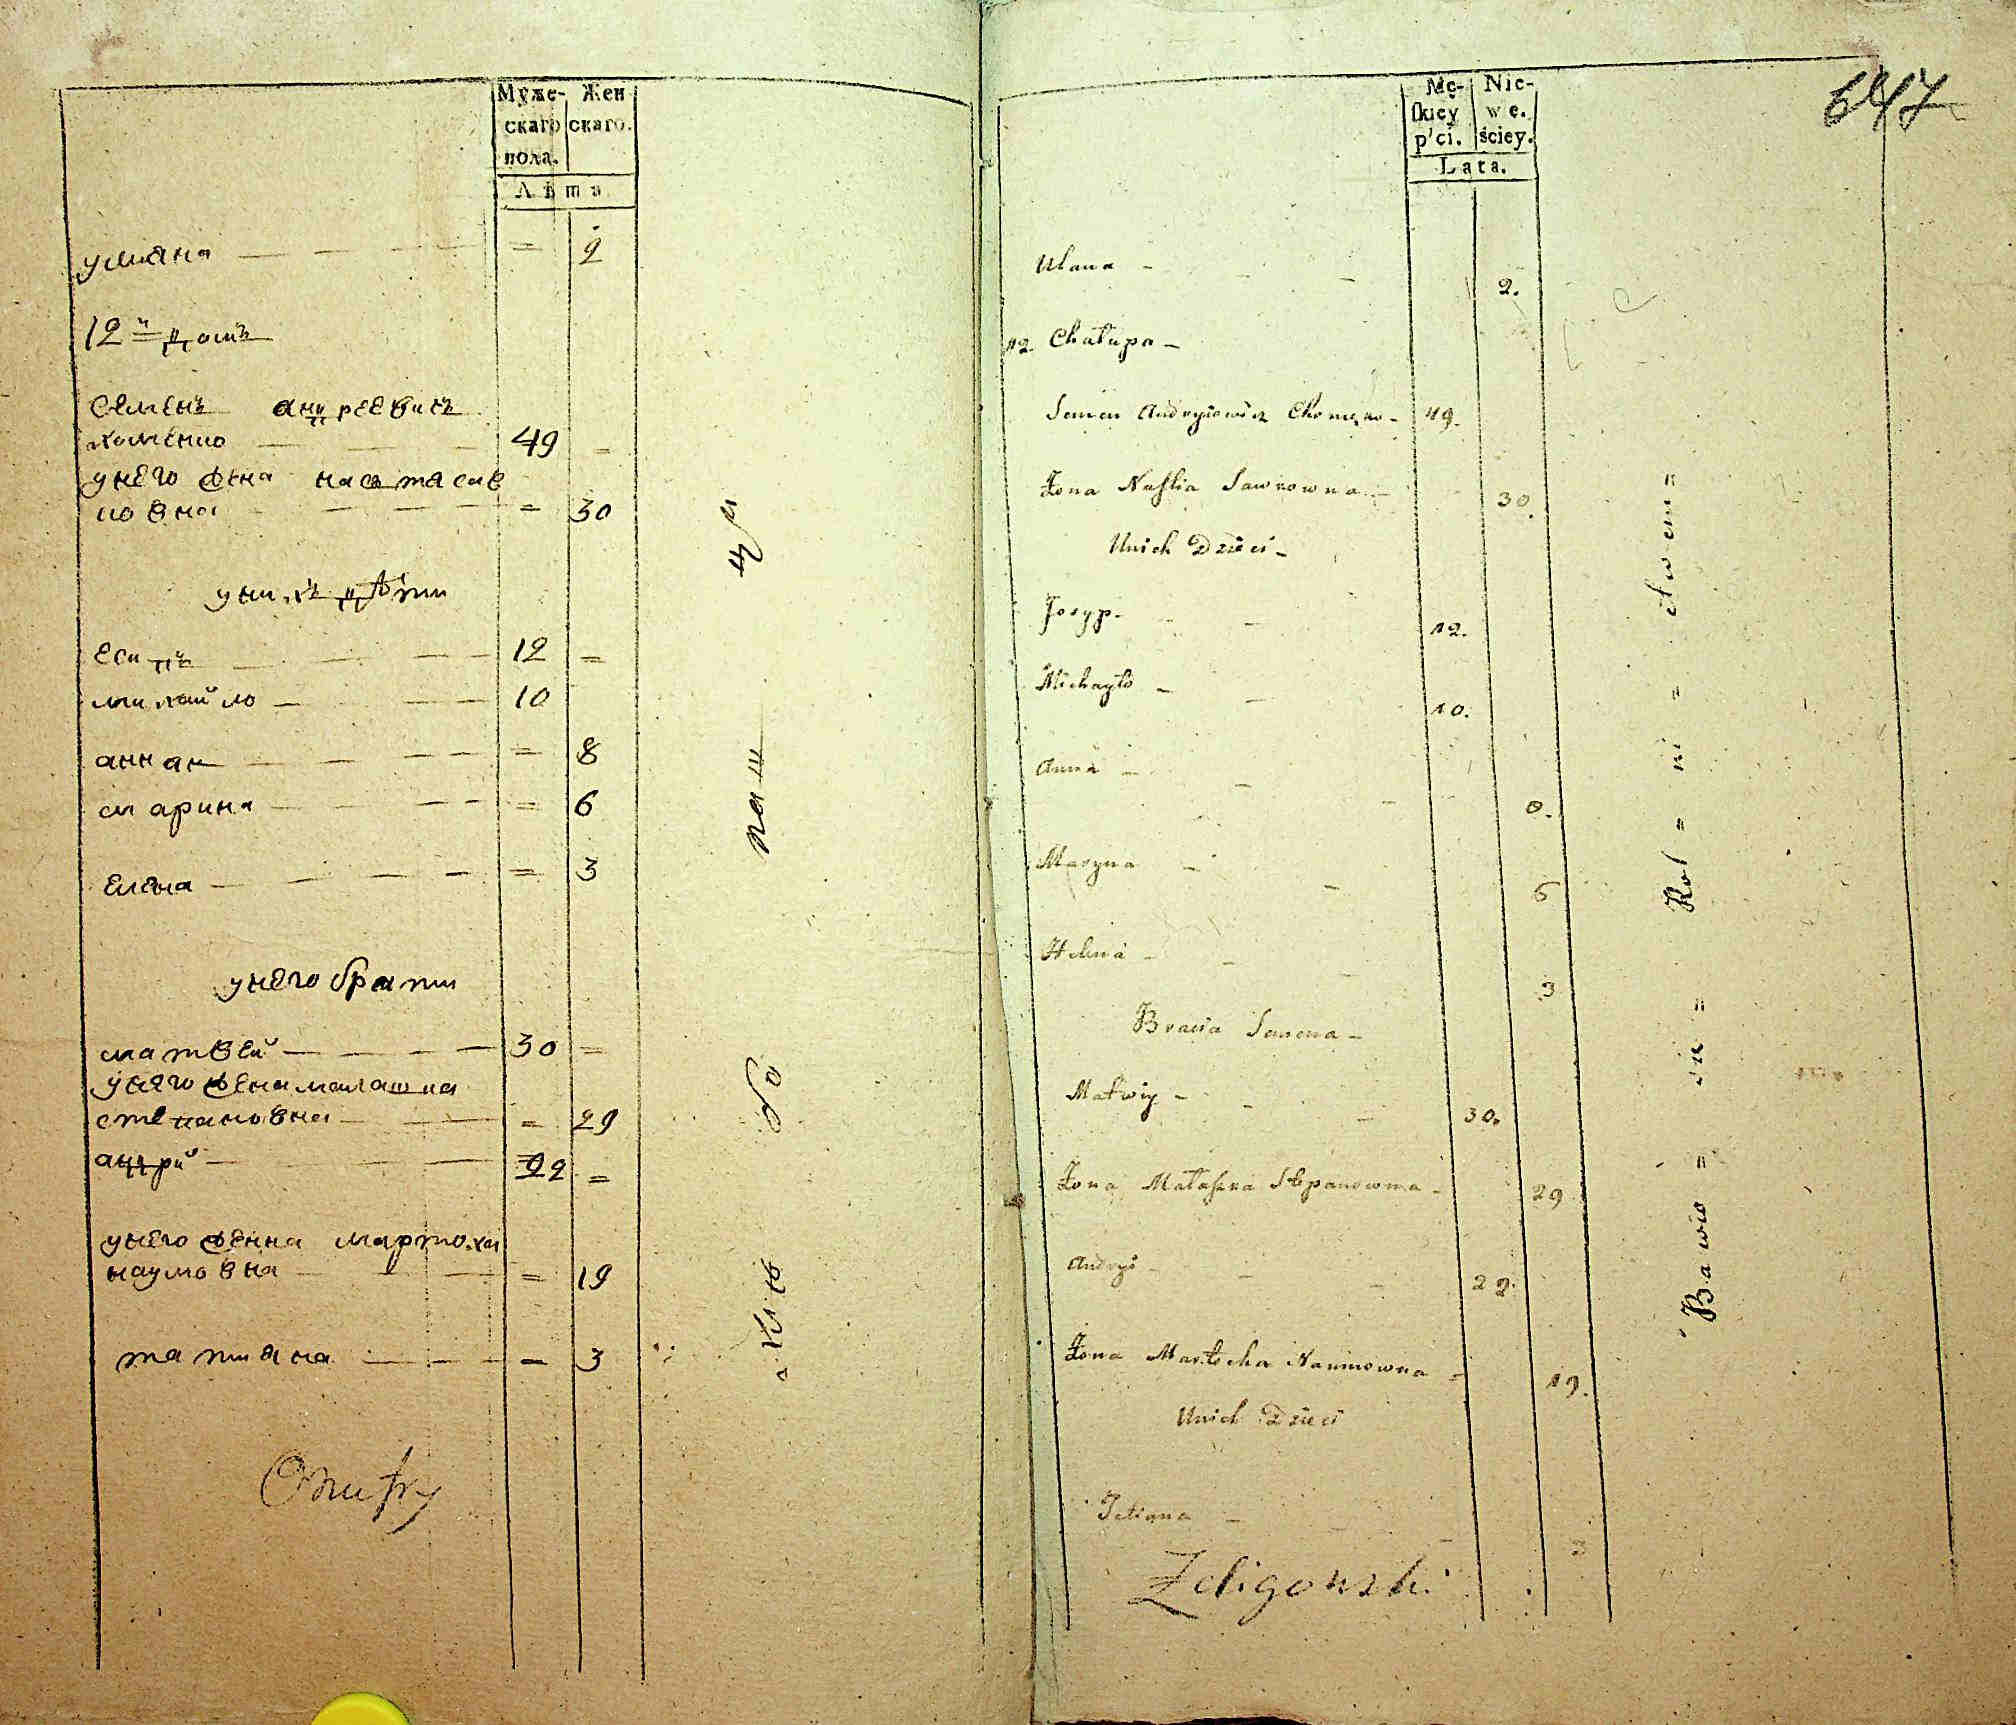 Муже- Жен
скаго скаго.
пола.
Лѣта
улияна — — — = 2
12й домъ
Семенъ андреевичъ
хоменко — — — 49 =
унего жена настасия
— — — = 30
унихъ дѣти
есипъ — — — 12 =
михайло — — — 10
анна — — — = 8
марина — — — = 6
елена — — — = 3
унего брати
матвей — — — 30 =
унего жена малашка
степановна — — = 29
андрѣй — — 22 =
унего женна мартоха
наумовна — — = 19
татияна — — — 3
Onufry
647
Mę- Nie-
skiey we.
p'ci. ściey.
Lata.
Ulana - - - 2.
12. Chałupa -
Semen Andryiowicz Chomęko - 49.
Żona Nastia Sawkowna - 30.
Unich Dzieci -
Josyp - - - 12.
Michayło - - 10.
Anna - - - 8.
Maryna - - 6
Helena - - - 3
Bracia Semena -
Matwiy - - - 30.
Żona Małaszka Stepanowna - 29
Andryi - - - 22.
Żona Martocha Naumowna - 19.
Unich Dzieci
Tetiana - - - 3
Zeligowski
Bawio = się = Rol = ni = ctwem =